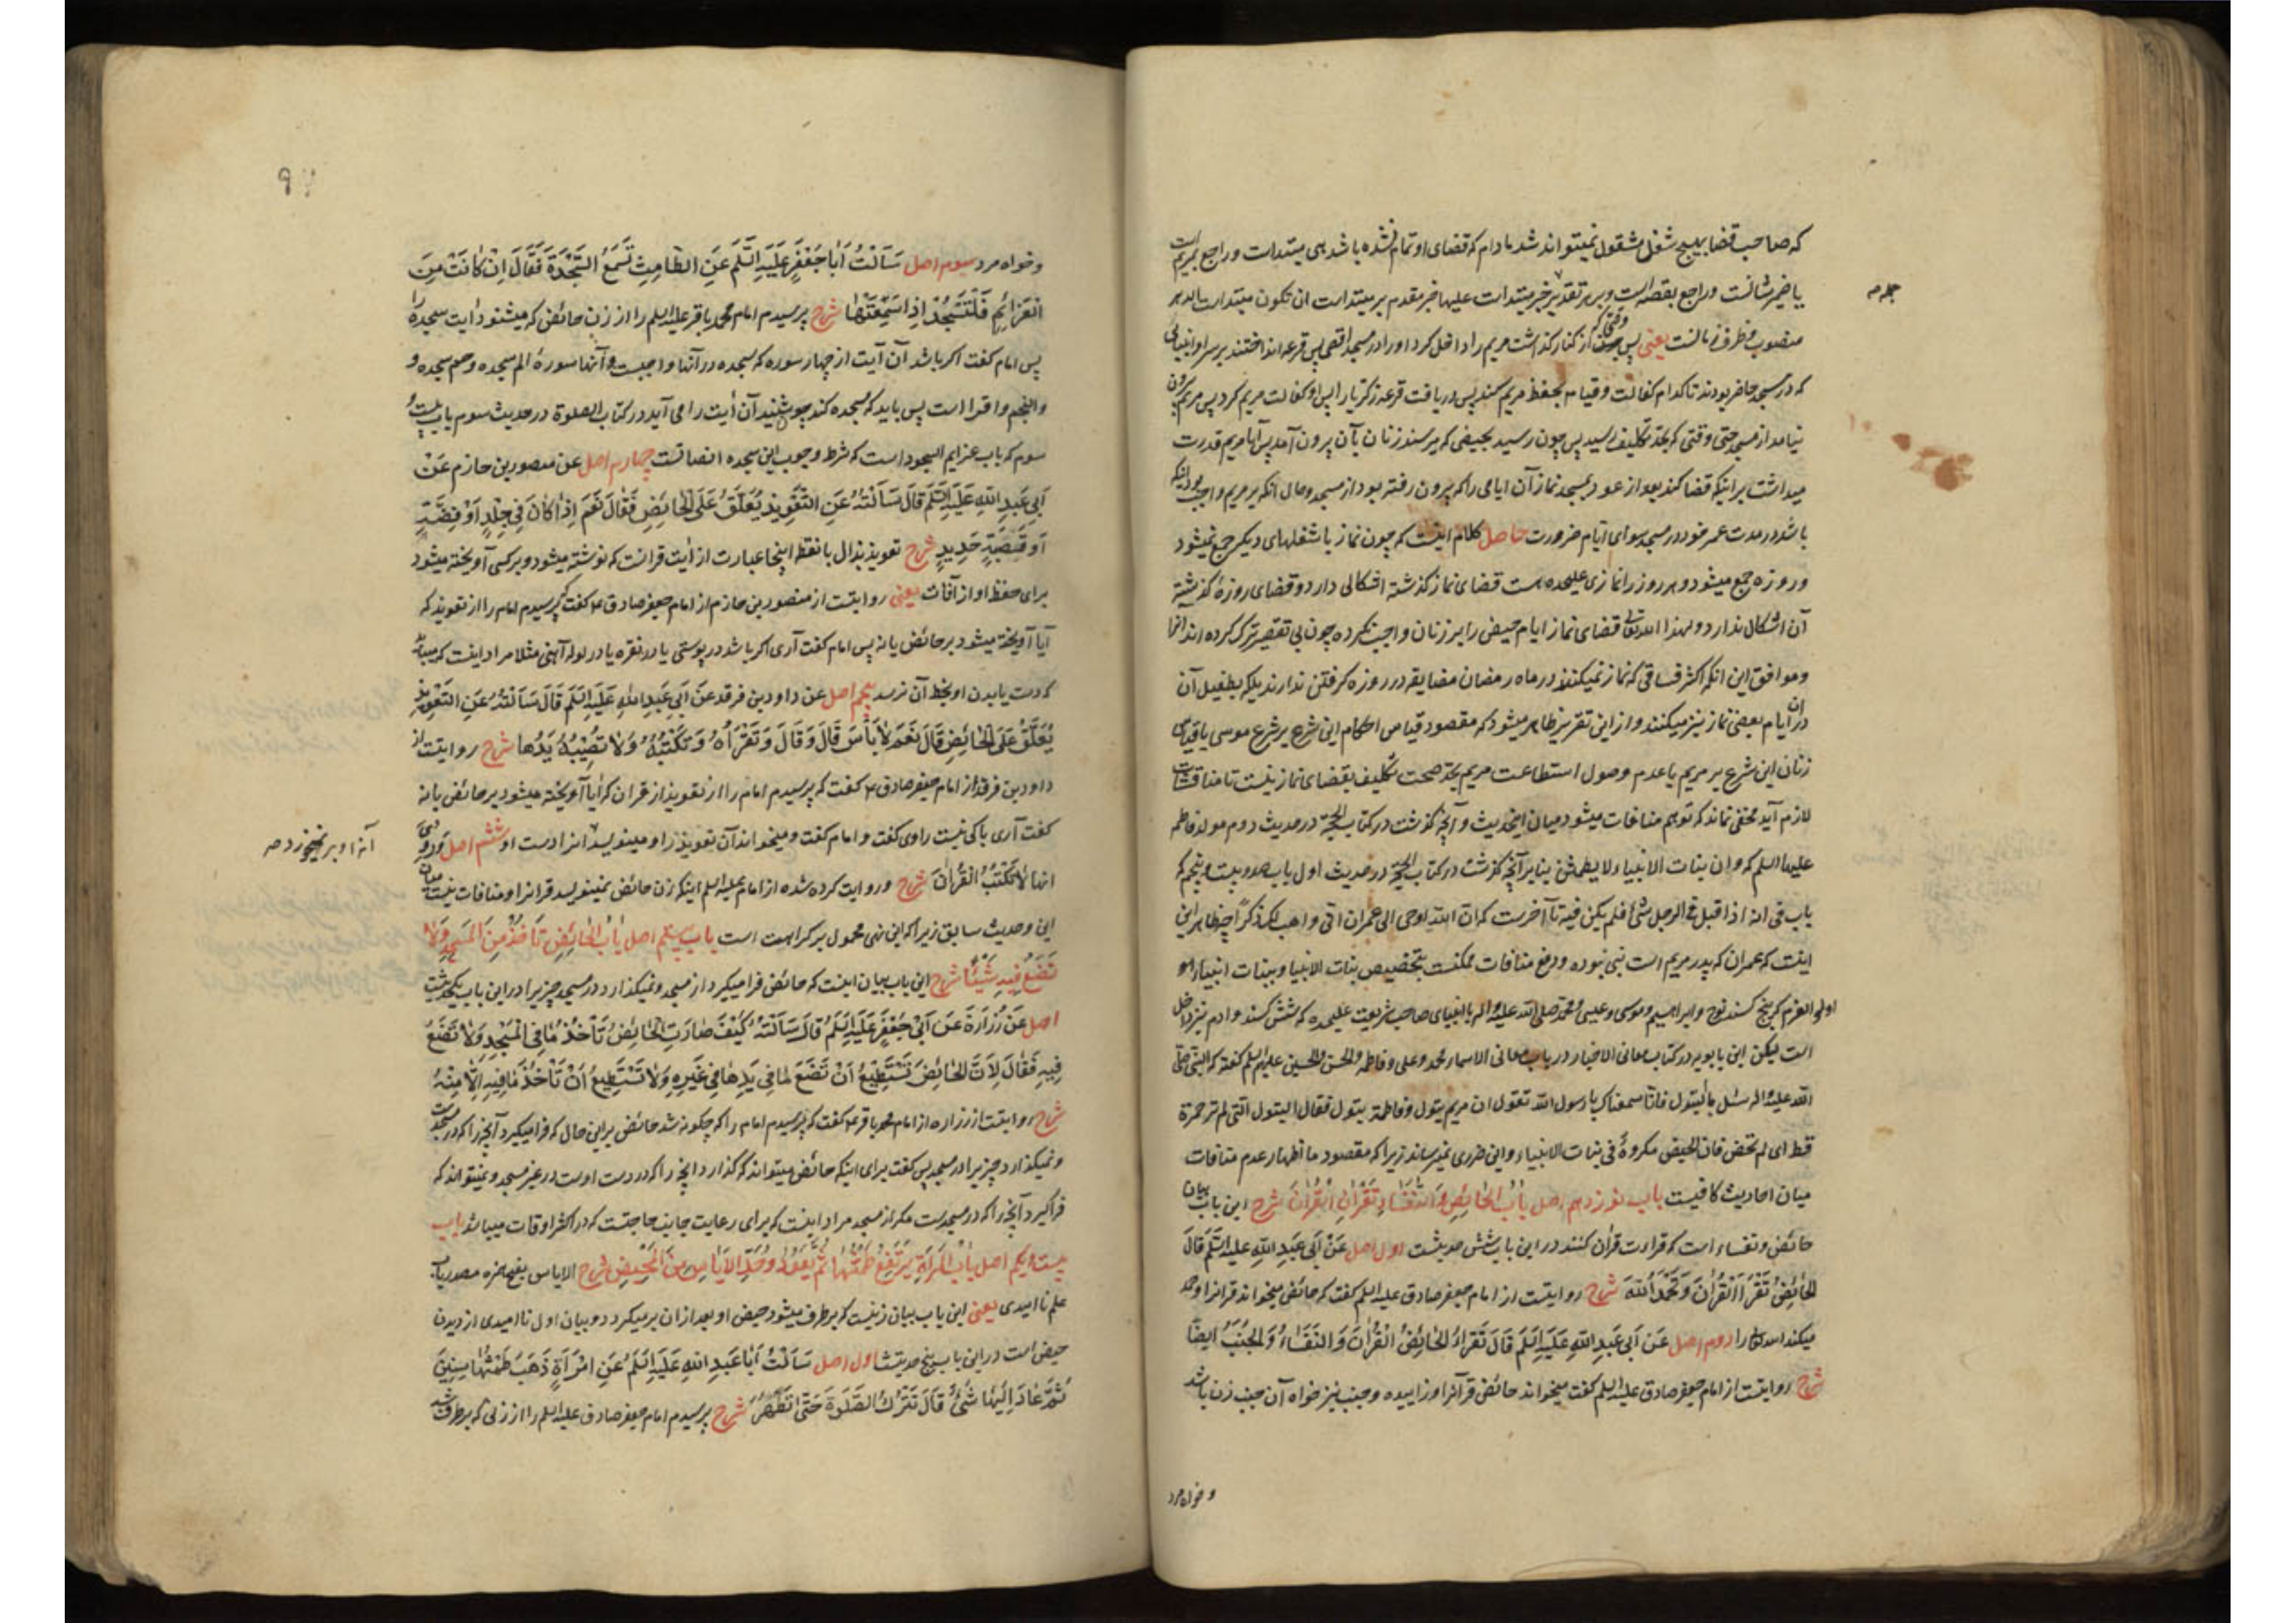 که صاحب قضا بهیچ شغل مشغول نمیتواند شد مادام که قضای او تمام نشده باشد هی مبتداست و راجع بمریم است
یا ضمیر شانست و راجع بقصه است و بر هر تقدیر خبر مبتداست علیها خبر مقدم بر مبتداست ان تکون مبتداست
جمله
منصوب و ظرف زمانست یعنی پس وقتی که از کنار کذاشت مریم را داخل کرد او را در مسجد اقصی پس قرعه انداختند بر سر او انبیائی
که در مسجد حاضر بودند تا کدام کفالت و قیام بحفظ مریم کند پس دریافت قرعه زکریا را پس او کفالت مریم کرد پس مریم بیرون
نیامد از مسجد حتی وقتی که بحد تکلیف رسید پس چون رسید بحیضی که میرسند زنان بآن بیرون آمد پس آیا مریم قدرت
میداشت بر اینکه قضا کند بعد از عود بمسجد نماز آن ایامی را که بیرون رفته بود از مسجد و حال آنکه بر مریم واجب بود اینکه
باشد در مدت عمر خود در مسجد سوای ایام ضرورت حاصل کلام اینست که چون نماز با شغلهای دیکر جمع نمیشود
و روزه جمع میشود و هر روز را نمازی علیحده هست قضای نماز کذشته اشکالی دارد و قضای روزهٔ کذشته
آن اشکال ندارد و لهذا الله تعالی قضای نماز ایام حیض را بر زنان واجب نکرده چون بی تقصیر ترک کرده اند آنرا
و موافق این انکه اکثر فساقی که نماز نمیکنند در ماه رمضان مضایقه در روزه کرفتن ندارند بلکه بطفیل آن
در آن ایام بعضی نماز نیز میکنند و از این تقریر ظاهر میشود که مقصود قیاس احکام این شرع بر شرع موسی یا قیاس
زنان این شرع بر مریم یا عدم وصول استطاعت مریم بحد صحت تکلیف بقضای نماز نیست تا مناقشات
لازم آید مخفی نماند که توهم منافات میشود میان اینحدیث و آنچه کذشت در کتاب الحجة در حدیث دوم مولد فاطمه
علیها السلم که و ان بنات الانبیاء لا یطمثن بنابر آنچه کذشت در کتاب الحجة در حدیث اول باب صد و بیست و پنجم که
باب فی انه اذا قیل فی الرجل شئ فلم یکن فیه تا آخر است که ان الله اوحی الی عمران انی واهب لک ذکرا چه ظاهر این
اینست که عمران که پدر مریم است نبی نبوده و رفع منافات ممکنست بتخصیص بنات الانبیا و ببنات انبیاء
اولو العزم که پنج کسند نوح و ابراهیم و موسی و عیسی و محمد صلی الله علیه و اله یا انبیای صاحب شریعت علیحده که شش کسند و ادم نیز داخل
است لیکن ابن بابویه در کتاب معانی الاخبار در باب معانی الاسماء محمد و علی و فاطمه و الحسن و الحسین علیهم السلم کفته که النبی صلی
الله علیه و اله سئل ما البتول فانا سمعناک یا رسول الله تقول ان مریم بتول و فاطمة بتول فقال البتول التی لم تر حمرة
قط ای لم تحض فان الحیض مکروهٌ فی بنات الانبیاء و این ضرری نمیرساند زیرا که مقصود ما اظهار عدم منافات
میان احادیث کافیست باب نوزدهم اصل بَابُ الحَائِضِ وَ النُّفَسَاءِ تَقْرَانِ الْقُرْانَ شرح این باب بیان
حائض و نفساء است که قراءت قرآن کنند در این باب شش حدیثست اول اصل عَنْ اَبِی عَبدِ اللهِ علیه السَّلَم قَالَ
الحَائِضُ تَقْرَأُ الْقُرْانَ وَ تَحْمَدُ اللّهَ شرح روایتست از امام جعفر صادق علیه السلم کفت که حائض میخواند قرانرا و حمد
میکند الله تعالی را دوم اصل عَنْ اَبِی عَبدِ اللهِ عَلَیهِ السَّلَم قَالَ تَقرَاءُ الحَائِضُ الْقُرْانَ وَ النُّفَسَاءُ وَ الجُنُبُ اَیضًا
شرح روایتست از امام جعفر صادق علیه السلم کفت میخواند حائض قرآنرا و زاییده و جنب نیز خواه آن جنب زن باشد
و خواه مرد
۹۷
و خواه مرد سیوم اصل سَاَلْتُ اَبَا جَعْفَرٍ عَلَیهِ السَّلَم عَنِ الطَّامِثِ تَسْمَعُ السَّجْدَةَ فَقَالَ اِنْ کَانَتْ مِنَ
الْعَزَائِمِ فَلْتَسْجُدْ اِذَا سَمِعَتْهَا شرح پرسیدم امام محمد باقر علیه السلم را از زن حائض که میشنود ایت سجده را
پس امام کفت اکر باشد آن آیت از چهار سوره که سجده در آنها واجبست و آنها سورهٔ الم سجده و حم سجده و
و النجم و اقرا است پس باید که سجده کند چو شنید آن آیت را می آید در کتاب الصلوة در حدیث سوم باب بیست و
سوم که باب عزایم السجود است که شرط وجوب این سجده انصاتست چهارم اصل عن منصور بن حازم عَنْ
اَبِی عَبدِ اللهِ عَلَیهِ السَّلَم قَالَ سَاَلْتُهُ عَنِ التَّعْوِیذِ یُعَلَّقُ عَلَی الحَائِضِ فَقَالَ نَعَمْ اِذَا کَانَ فِی جِلْدٍ اَوْ فِضَّةٍ
اَوْ قَصَبَةِ حَدِیدٍ شرح تعویذ بذال با نقطه اینجا عبارت از ایت قرانست که نوشته میشود و بر کسی آویخته میشود
برای حفظ او از آفات یعنی روایتست از منصور بن حازم از امام جعفر صادق ع کفت که پرسیدم امام را از تعویذ که
آیا آویخته میشود بر حائض یا نه پس امام کفت آری اکر باشد در پوستی یا در نقره یا در لوله آهنی مثلا مراد اینست که مبادا
که دست یا بدن او بخط آن نرسد پنجم اصل عن داود بن فرقد عَنْ اَبِی عَبدِ اللهِ عَلَیهِ السَّلَم قَالَ سَاَلْتُهُ عَنِ التَّعْوِیذِ
یُعَلَّقُ عَلَی الحَائِضِ قَالَ نَعَمْ لَا بَأْسَ قَالَ وَ قَالَ وَ تَقْرَأُهُ وَ تَکْتُبُهُ وَ لَا تُصِیبُهُ یَدُهَا شرح روایتست از
داود بن فرقد از امام جعفر صادق ع کفت که پرسیدم امام را از تعویذ از قران که ایا آویخته میشود بر حائض یا نه
کفت آری باکی نیست راوی کفت و امام کفت و میخواند آن تعویذ را و مینویسد انرا و دست او ششم اصل وَ رُوِیَ
آنرا و بر نمیخورد صح
انها لَا تَکْتُبُ الْقُرْانَ شرح و روایت کرده شده از امام علیه السلم اینکه زن حائض نمینویسد قرانرا و منافات نیست میان
این و حدیث سابق زیرا که این نهی محمول بر کراهت است باب بیستم اصل بَابُ الحَائِضِ تَاخُذُ مِنَ المَسجِدِ وَ لَا
تَضَعُ فِیهِ شَیْئًا شرح این باب بیان اینست که حائض فرا میکیرد از مسجد و نمیکذارد در مسجد چیزیرا در این باب یکحدیثست
اصل عَنْ زُرَارَةَ عَنْ اَبِی جَعْفَرٍ عَلَیهِ السَّلَم قَالَ سَاَلْتُهُ کَیْفَ صَارَتِ الْحَائِضُ تَاْخُذُ مَا فِی الْمَسْجِدِ وَ لَا تَضَعُ
فِیهِ فَقَالَ لِاَنَّ الْحَائِضَ تَسْتَطِیعُ اَنْ تَضَعَ مَا فِی یَدِهَا فِی غَیرِهِ وَ لَا تَسْتَطِیعُ اَنْ تَاْخُذَ مَا فِیهِ اِلَّا مِنْهُ
شرح روایتست از زراره از امام محمد باقر ع کفت که پرسیدم امام را که چکونه شد حائض بر این حال که فرا میکیرد آنچه را که در مسجد است
و نمیکذارد چیزیرا در مسجد پس کفت برای اینکه حائض میتواند که کذارد انچه را که در دست اوست در غیر مسجد و نمیتواند که
فرا کیرد آنچه را که در مسجدست مکر از مسجد مراد اینست که برای رعایت جانب حاجتست که در اکثر اوقات میباشد باب
بیست و یکم اصل بَابُ الْمَرْاَةِ یَرْتَفِعُ طَمْثُهَا ثُمَّ یَعُودُ وَ حَدِّ الْاِیَاسِ مِنَ الْمَحِیضِ شرح الایاس بفتح همزه مصدر باب
علم ناامیدی یعنی این باب بیان زنیست که برطرف میشود حیض او بعد از ان برمیکردد و بیان اول ناامیدی از دیدن
حیض است در این باب پنج حدیثست اول اصل سَاَلْتُ اَبَا عَبدِ اللهِ عَلَیهِ السَّلَم عَنِ امْرَاَةٍ ذَهَبَ طَمْثُهَا سِنِینَ
ثُمَّ عَادَ اِلَیْهَا شَیْءٌ قَالَ تَتْرُکُ الصَّلَوةَ حَتَّی تَطْهُرَ شرح پرسیدم امام جعفر صادق علیه السلم را از زنی که برطرف شد